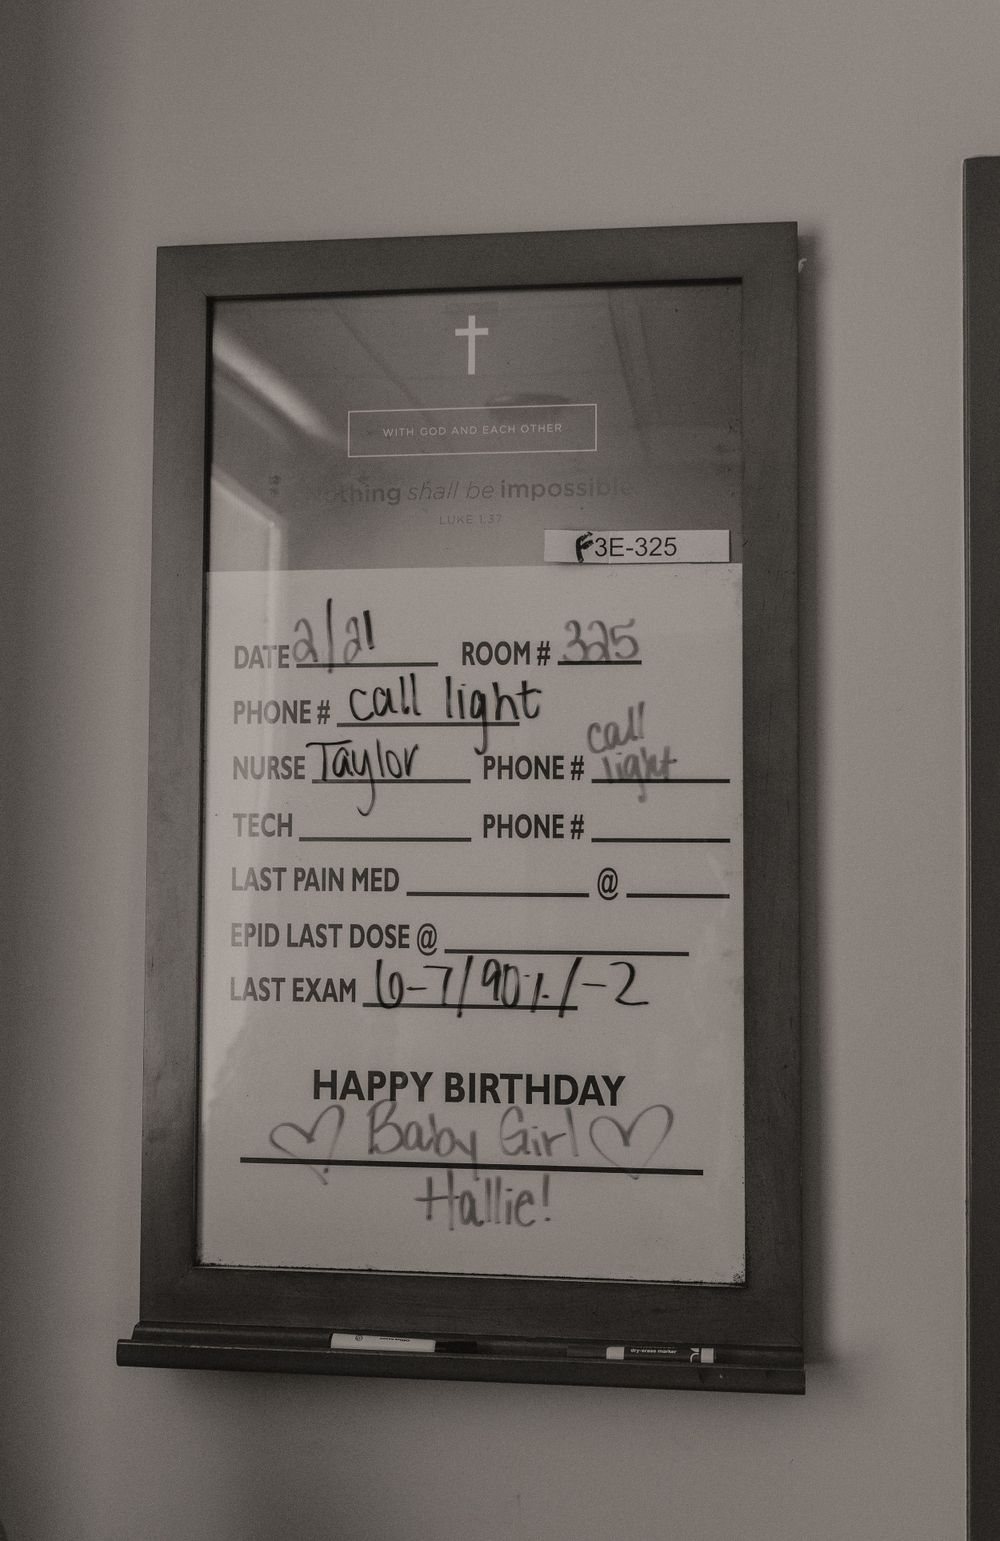 WITH GOD AND EACH OTHER
Nothing shall be impossible
LUKE 1:37
F3E-325
DATE 2/21 ROOM # 325
PHONE # call light
NURSE Taylor PHONE # call light
TECH PHONE #
LAST PAIN MED @
EPID LAST DOSE @
LAST EXAM 6-7/90%/-2
HAPPY BIRTHDAY
Baby Girl
Hallie!
dry-erase marker